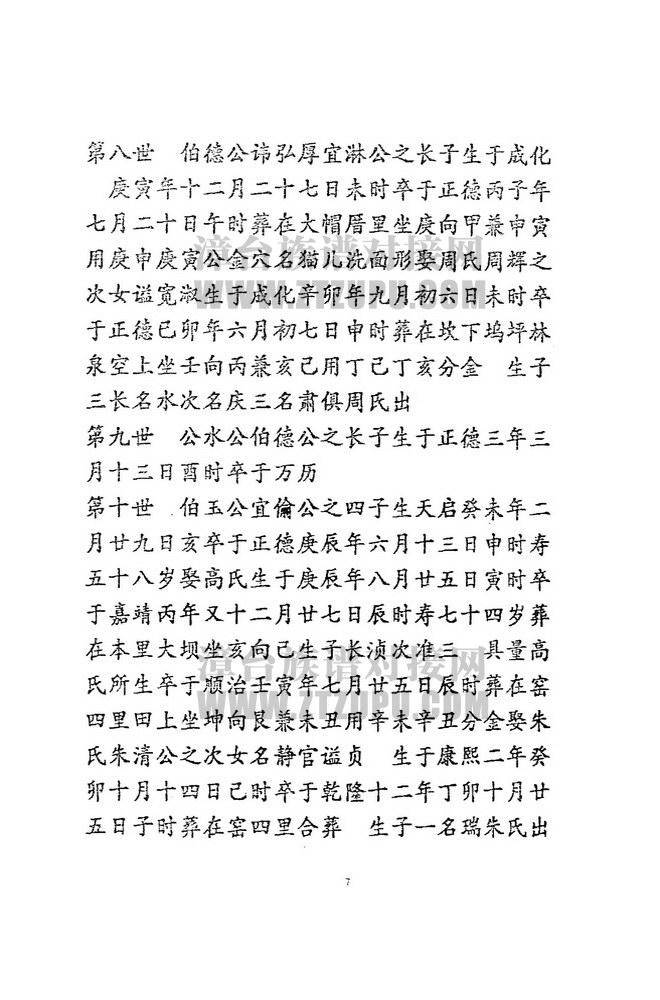 第八世　伯德公讳弘厚宜淋公之长子生于成化
庚寅年十二月二十七日未时卒于正德丙子年
七月二十日午时葬在大帽厝里坐庚向甲兼申寅
用庚申庚寅公金穴名猫儿洗面形娶周氏周辉之
次女谥宽淑生于成化辛卯年九月初六日未时卒
于正德已卯年六月初七日申时葬在坎下坞坪林
泉空上坐壬向丙兼亥己用丁己丁亥分金　生子
三长名水次名庆三名肃俱周氏出
第九世　公水公伯德公之长子生于正德三年三
月十三日酉时卒于万历
第十世　伯玉公宜倫公之四子生天启癸未年二
月廿九日亥卒于正德庚辰年六月十三日申时寿
五十八岁娶高氏生于庚辰年八月廿五日寅时卒
于嘉靖丙年又十二月廿七日辰时寿七十四岁葬
在本里大坝坐亥向己生子长浈次准三　具量高
氏所生卒于顺治壬寅年七月廿五日辰时葬在窑
四里田上坐坤向艮兼未丑用辛未辛丑分金娶朱
氏朱清公之次女名静官谥贞　生于康熙二年癸
卯十月十四日己时卒于乾隆十二年丁卯十月廿
五日子时葬在窑四里合葬　生子一名瑞朱氏出
漳台族谱对接网
WWW.ZTZUPU.COM
漳台族谱对接网
WWW.ZTZUPU.COM
7